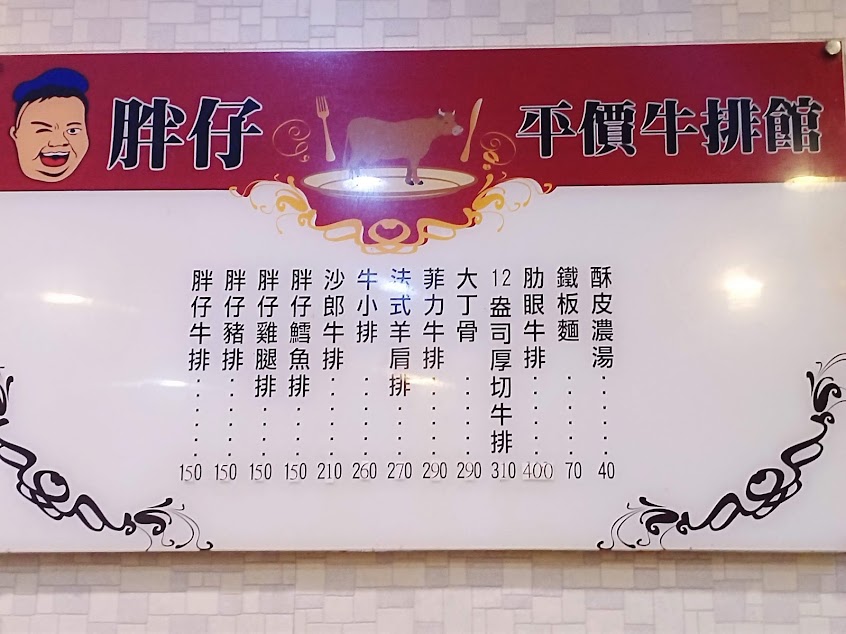 胖仔 平價牛排館
胖仔牛排......150
胖仔豬排......150
胖仔雞腿排.....150
胖仔鱈魚排.....150
沙郎牛排......210
牛小排......260
法式羊肩排.....270
菲力牛排......290
大丁骨......290
12盎司厚切牛排 310
肋眼牛排......400
鐵板麵......70
酥皮濃湯......40